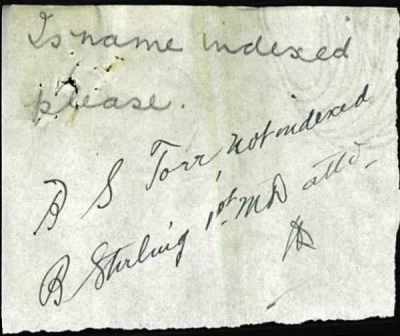 Is name indexed
please.
B S Torr, not indexed
B Stirling 1st MD attd